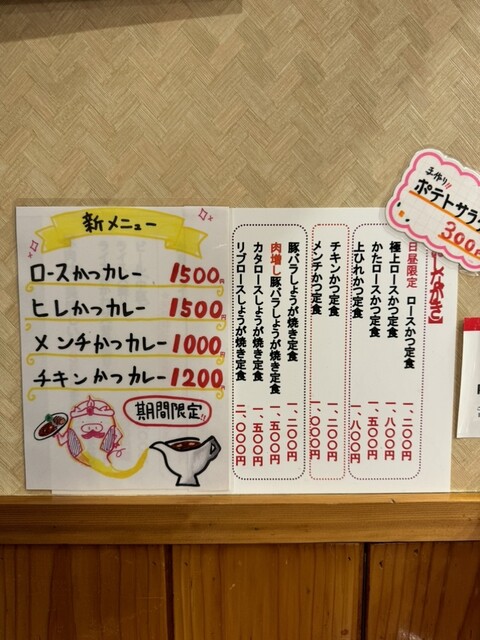 新メニュー
ロースかつカレー 1500円
ヒレかつカレー 1500円
メンチかつカレー 1000円
チキンかつカレー 1200円
期間限定!!
手作り!!
ポテトサラダ
300円
日昼限定 ロースかつ定食 一、二〇〇円
極上ロースかつ定食 一、八〇〇円
かたロースかつ定食 一、五〇〇円
上ひれかつ定食 一、八〇〇円
チキンかつ定食 一、二〇〇円
メンチかつ定食 一、〇〇〇円
豚バラしょうが焼き定食 一、二〇〇円
肉増し豚バラしょうが焼き定食 一、五〇〇円
カタロースしょうが焼き定食 一、五〇〇円
リブロースしょうが焼き定食 二、〇〇〇円